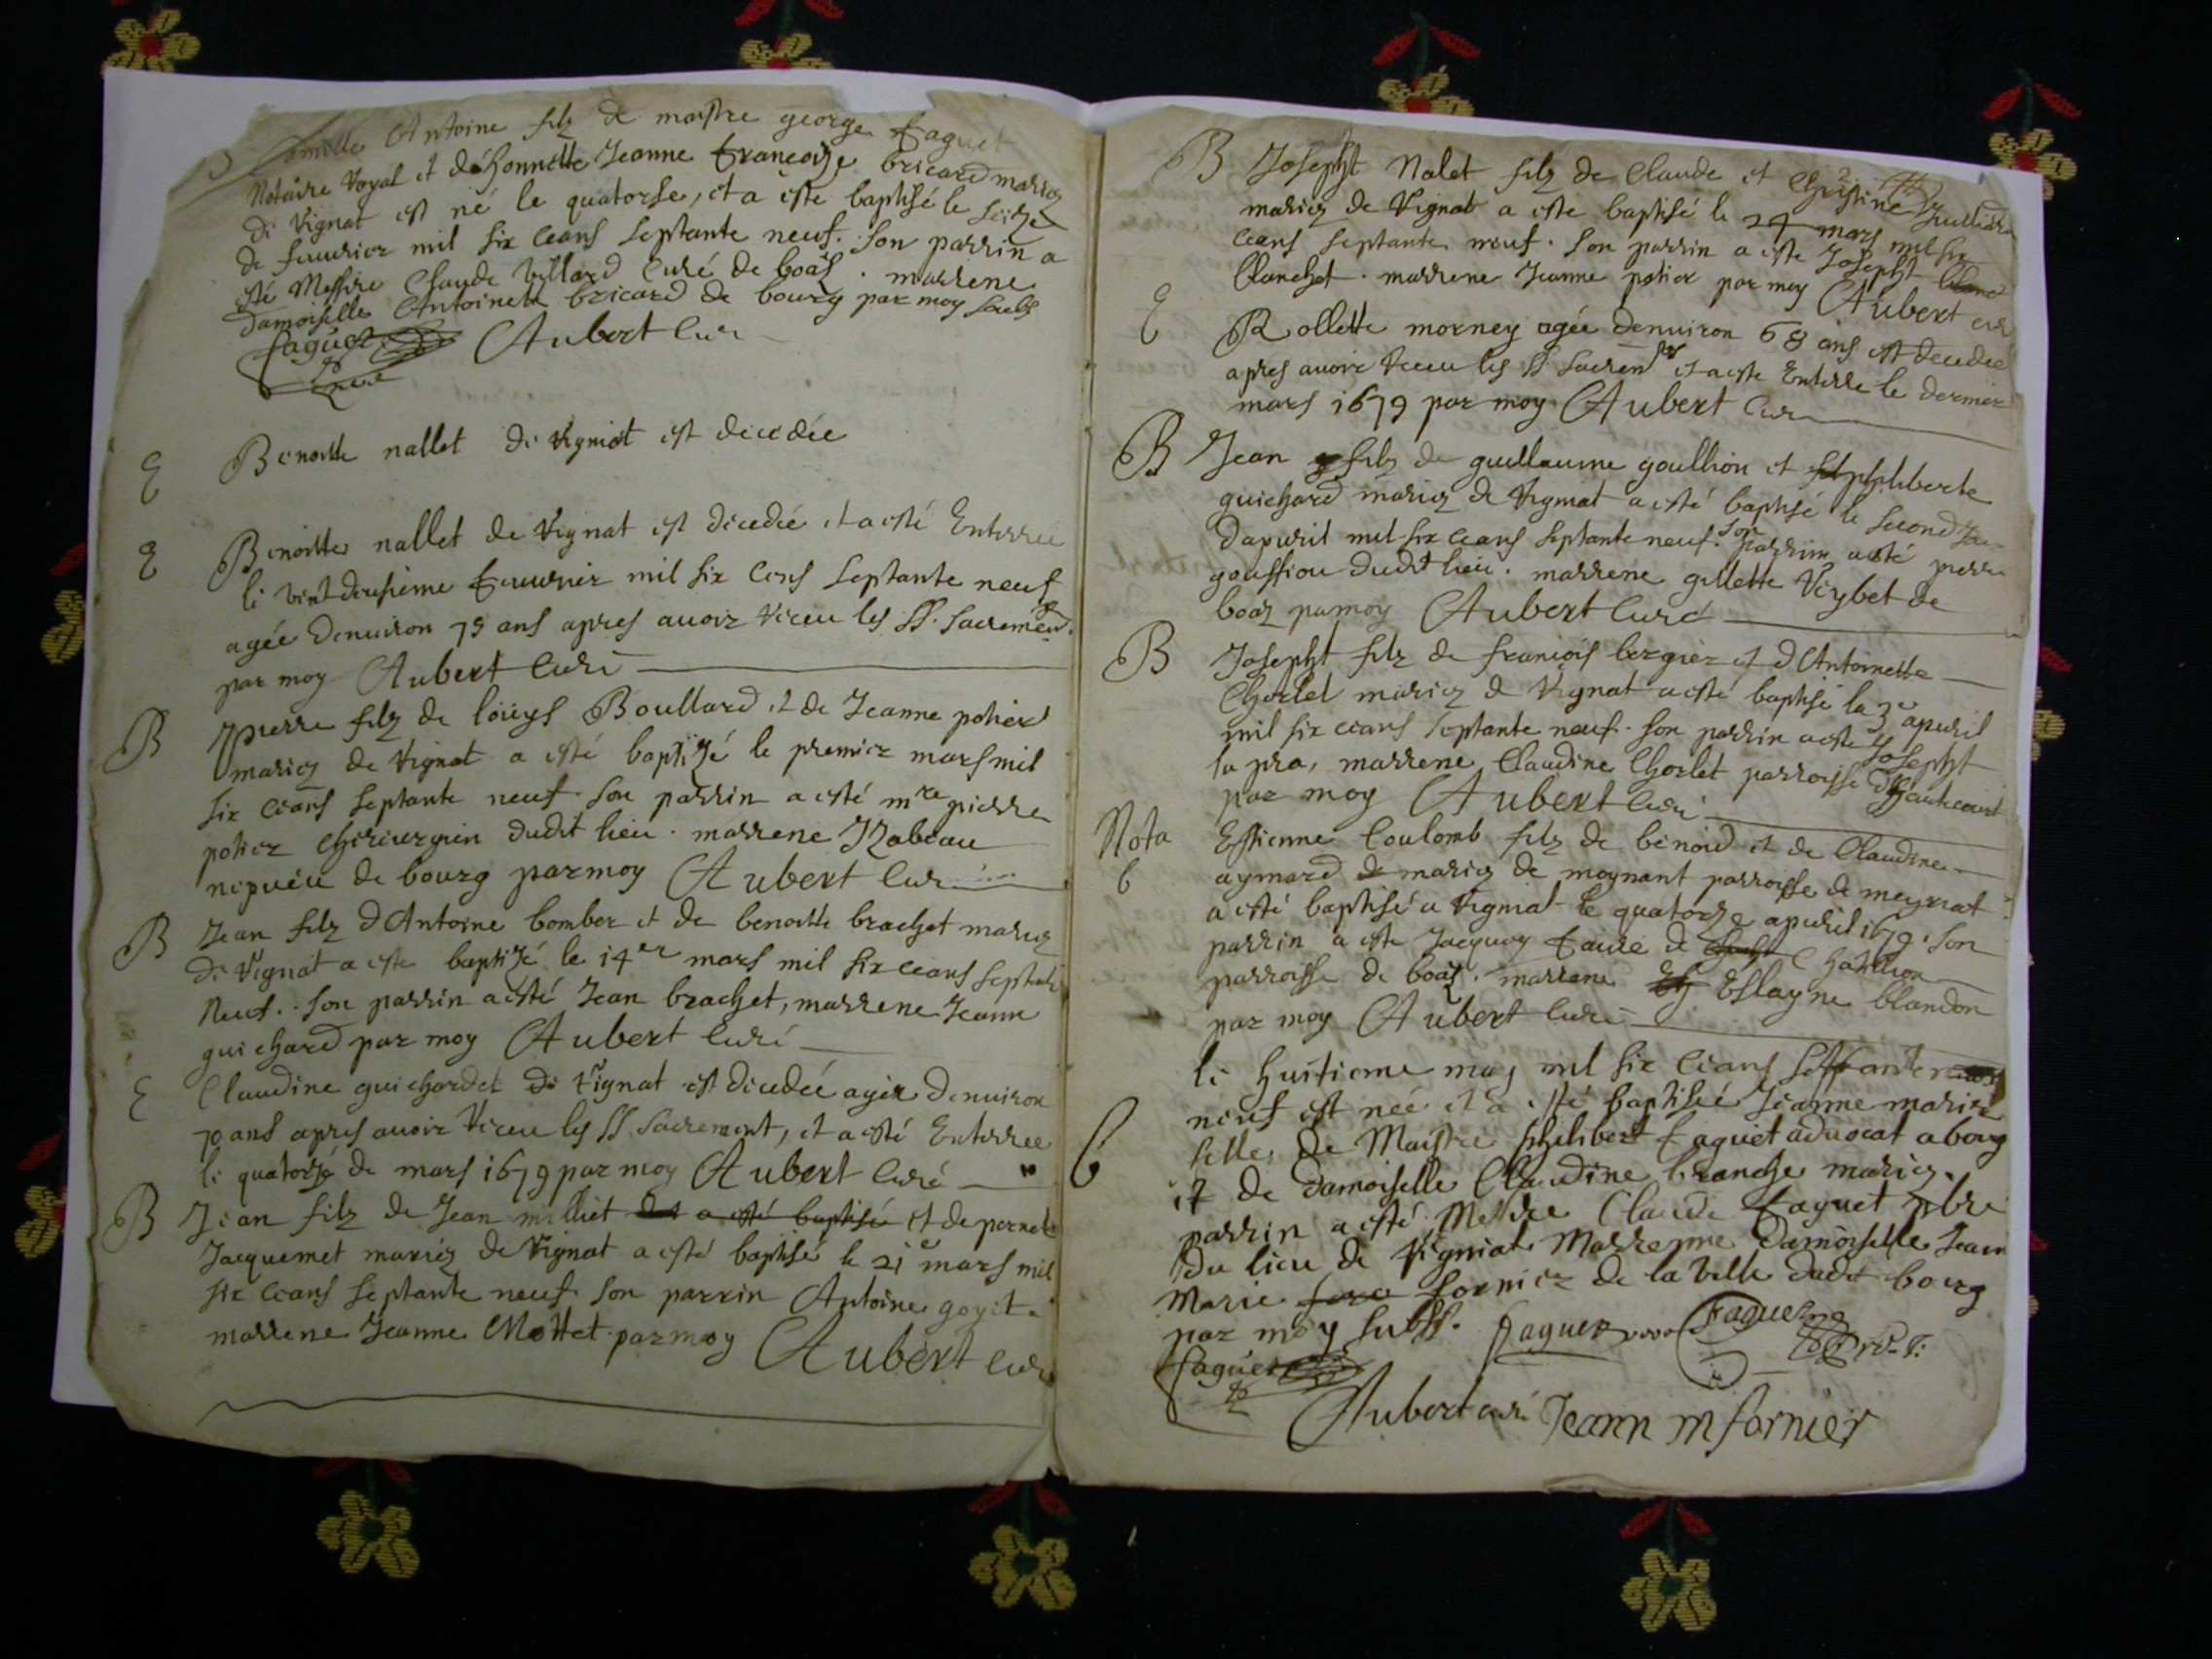 B Camille Antoine filz de maistre george faguet
Notaire Royal et de honnette Jeanne francoise bricard mariez
de Vignat est né le quatorse, et a este baptisé le seize
de feuurier mil six ceans septante neuf. Son parrin a
esté Messire Claude Villard Curé de boas. marrene
damoiselle Antoinette bricard de bourg par moy soubs
faguet Aubert Curé
E Benoitte nallet de Vigniat est decedée
E Benoitte nallet de Vignat est decedée et a esté Enterrée
le vint deusieme feuurier mil six cens septante neuf
agée denuiron 75 ans apres auoir receu les SS. sacremens
par moy Aubert Curé
B pierre filz de loüeys Boullard et de Jeanne potier
mariez de Vignat a esté baptizé le premier mars mil
six ceans septante neuf. son parrin a esté mre pierre
potier chirurgien dudit lieu. marrene Izabeau
nepueu de bourg par moy Aubert Curé
B Jean filz d'Antoine bomber et de benoitte brachet mariez
de Vignat a este baptizé le 14er mars mil six ceans septante
Neuf. son parrin a esté Jean brachet, marrene Jeanne
guichard par moy Aubert Curé
E Claudine guichardet de Vignat est decedée agée denuiron
70 ans apres auoir receu les SS sacrement, et a esté Enterree
le quatorse de mars 1679 par moy Aubert Curé
B Jean filz de Jean milliet a esté baptisé et de pernete
Jacquemet mariez de Vignat a esté baptisé le 21e mars mil
six ceans septante neuf son parrin Antoine goyet.
marrene Jeanne Mottet par moy Aubert Curé
B Josepht Nalet filz de Claude et Christine
mariez de Vignat a este baptisé le 24 mars mil six
ceans septante neuf. son parrin a este Josepht blanc
blanchet. marrene Jeanne potier par moy Aubert curé
E Rollette morney agée denuiron 68 ans est decedée
apres auoir receu les SS sacrem et a este Enterre le dernier
mars 1679 par moy Aubert Curé
B Jean g filz de guillaume goullion et fil philiberte
guichard mariez de Vignat a esté baptisé le second
dapuril mil six ceans septante neuf. son parrin a esté pierre
gouffiou dudt lieu. marrene gillette Reybet de
boaz par moy Aubert Curé
B Josepht filz de francois bergier et d'Antoinette
Chorlet mariez de Vignat a esté baptisé la 3e apuril
mil six ceans septante neuf. son parrin a este Josepht
la pra, marrene Claudine Chorlet parroisse d'hautecourt
par moy Aubert Curé
Nota Estienne Coulomb filz de benoid et de Claudine
b aymard de mariez de moynant parroisse de meyriat
a esté baptisé a Vignat le quatorze apuril 1679. son
parrin a este Jacquoy faure de Chatillion
parroisse de boas. marrene Eslayne blandon
par moy Aubert Curé
le huitieme may mil six ceans septante
b neuf est née et a esté baptisée Jeanne marie
fille de Maistre philibert faguet aduocat a bourg
et de damoiselle Claudine branche mariez.
parrin a esté Messire Claude faguet pbre
du lieu de Vigniat Marrenne damoiselle Jeann
Marie fornier de la Ville dudit bourg
par moy subs. faguet faguet
faguet
Aubert curé Jeann m fornier